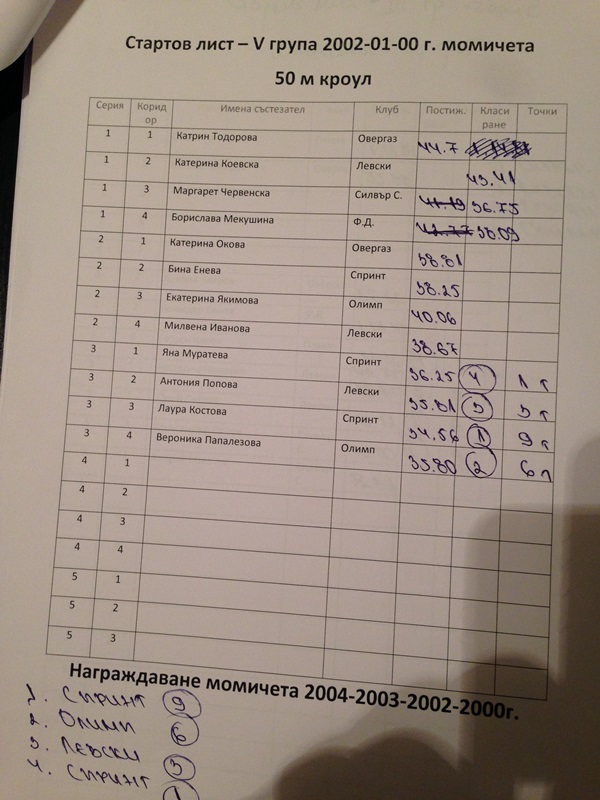 Стартов лист – V група 2002-01-00 г. момичета
50 м кроул
Серия Коридор Имена състезател Клуб Постиж. Класиране Точки
1 1 Катрин Тодорова Овергаз 44.7
1 2 Катерина Коевска Левски 43.41
1 3 Маргарет Червенска Силвър С. 41.19 36.75
1 4 Борислава Мекушина Ф.Д. 42.77 38.09
2 1 Катерина Окова Овергаз 38.81
2 2 Бина Енева Спринт 38.25
2 3 Екатерина Якимова Олимп 40.06
2 4 Милвена Иванова Левски 38.67
3 1 Яна Муратева Спринт 36.25 4 1 т
3 2 Антония Попова Левски 35.81 3 3 т
3 3 Лаура Костова Спринт 34.56 1 9 т
3 4 Вероника Папалезова Олимп 35.80 2 6 т
4 1
4 2
4 3
4 4
5 1
5 2
5 3
Награждаване момичета 2004-2003-2002-2000г.
1. Спринт 9
2. Олимп 6
3. Левски 3
4. Спринт 1